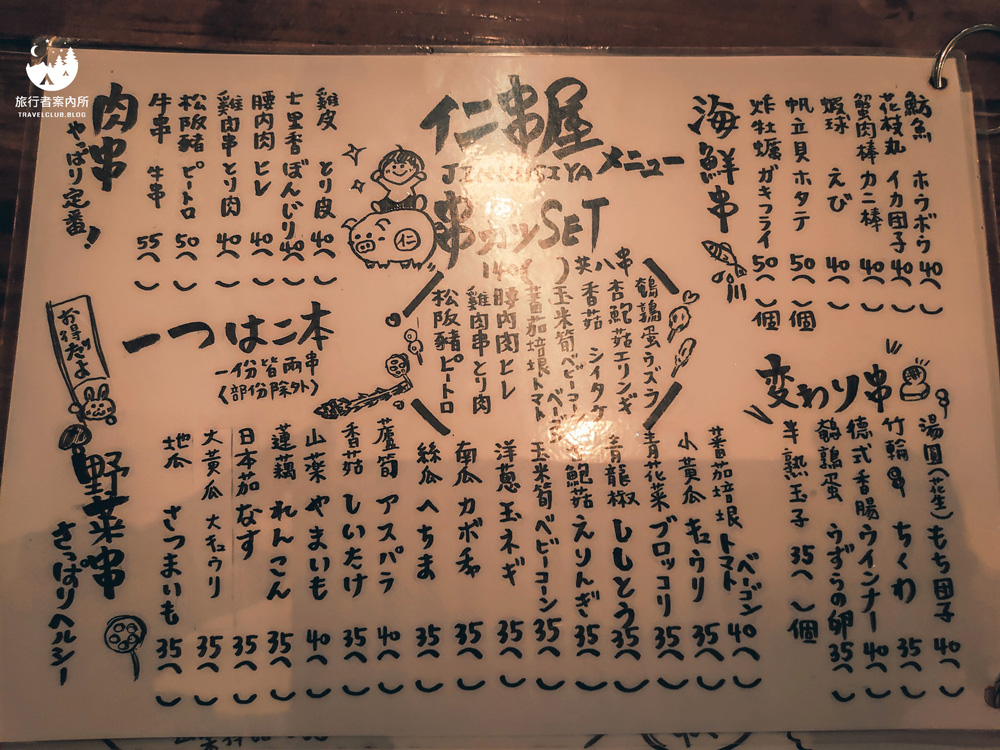 旅行者案內所
TRAVELCLUB.BLOG
仁串屋
JINKUSIYA メニュー
串カツSET
140( )共八串
鵪鶉蛋ウズラ
杏鮑菇エリンギ
香菇 シイタケ
玉米筍ベビーコーン
蕃茄培根トマトベーコン
腰內肉ヒレ
雞肉串とり肉
松阪豬ピートロ
海鮮串
魴魚 ホウボウ 40( )
花枝丸 イカ団子 40( )
蟹肉棒 カニ棒 40( )
蝦球 えび 40( )
帆立貝 ホタテ 50( )個
炸牡蠣 ガキフライ 50( )個
肉串
やっぱり定番!
雞皮 とり皮 40( )
七里香 ぼんじり 40( )
腰內肉 ヒレ 40( )
雞肉串 とり肉 40( )
松阪豬 ピートロ 50( )
牛串 牛串 55( )
一つは二本
一份皆兩串
(部份除外)
お得だよ
変わり串
湯圓(花生)もち団子 40( )
竹輪串 ちくわ 35( )
德式香腸 ウインナー 40( )
鵪鶉蛋 うずらの卵 35( )
半熟玉子 35( )個
野菜串
さっぱりヘルシー
蕃茄培根 トマトベーゴン 40( )
小黃瓜 キュウリ 35( )
青花菜 ブロッコリ 35( )
青龍椒 ししとう 35( )
杏鮑菇 えりんぎ 35( )
玉米筍 ベビーコーン 35( )
洋蔥 玉ネギ 35( )
南瓜 カボチャ 35( )
絲瓜 へちま 35( )
蘆筍 アスパラ 40( )
香菇 しいたけ 35( )
山薬 やまいも 40( )
蓮藕 れんこん 35( )
日本茄 なす 35( )
大黃瓜 大キュウリ 35( )
地瓜 さつまいも 35( )